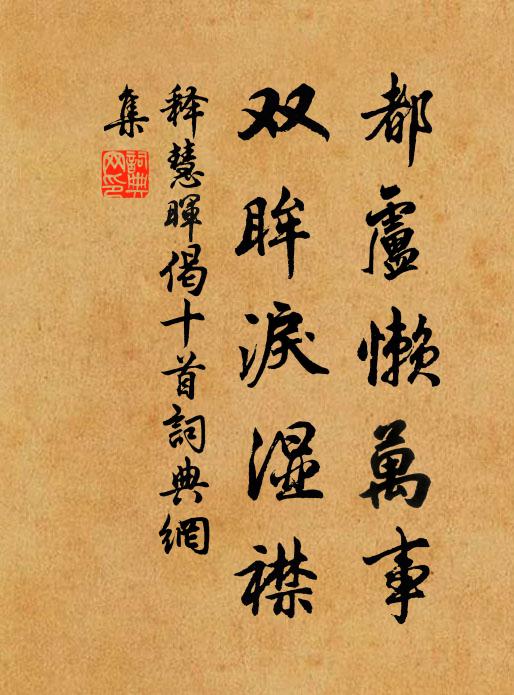 都盧懶萬事
双眸淚湿襟
释慧暉偈十首詞典網
集
詞典網印